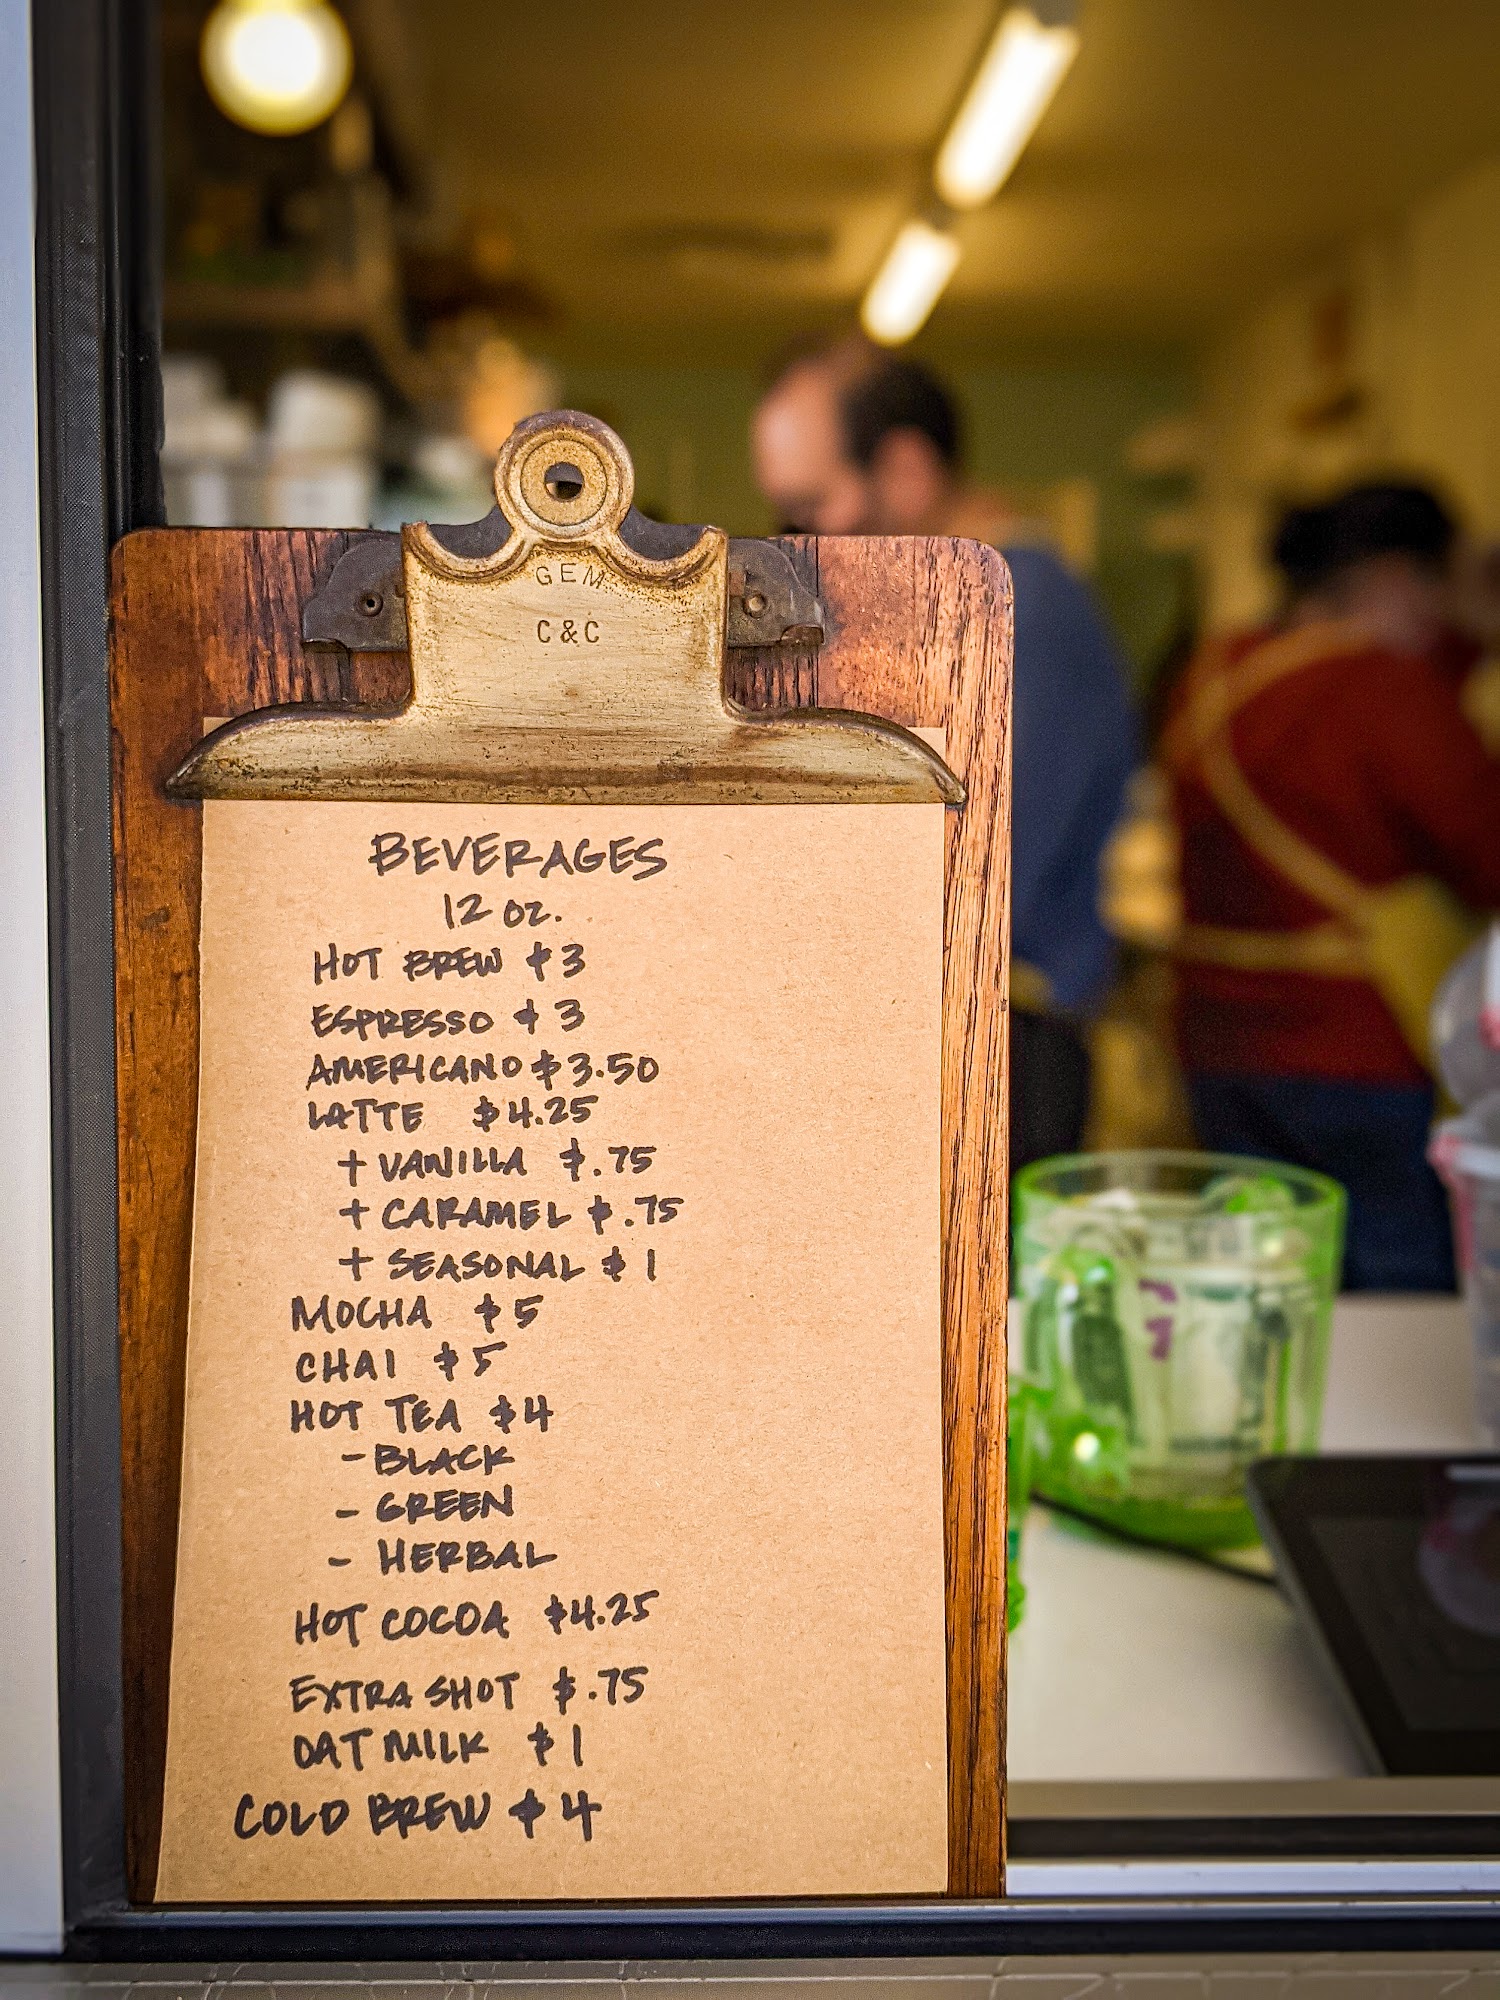 GEM
C&C
BEVERAGES
12 oz.
HOT BREW $3
ESPRESSO $3
AMERICANO $3.50
LATTE $4.25
+ VANILLA $.75
+ CARAMEL $.75
+ SEASONAL $1
MOCHA $5
CHAI $5
HOT TEA $4
- BLACK
- GREEN
- HERBAL
HOT COCOA $4.25
EXTRA SHOT $.75
OAT MILK $1
COLD BREW $4